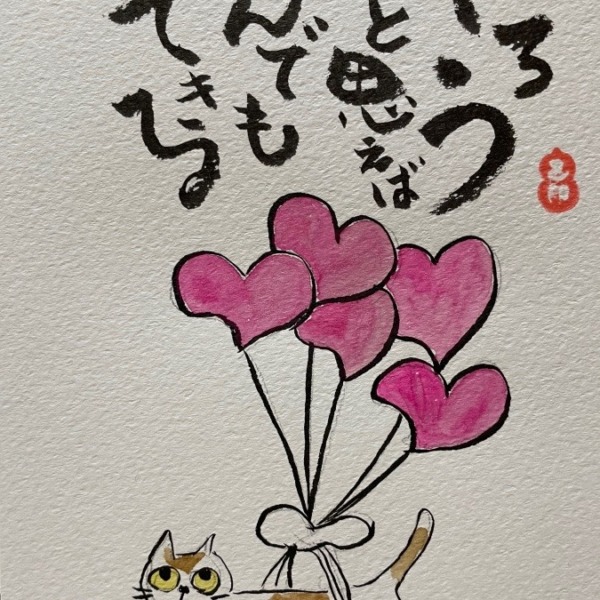 ろう
と思えば
んでも
できる